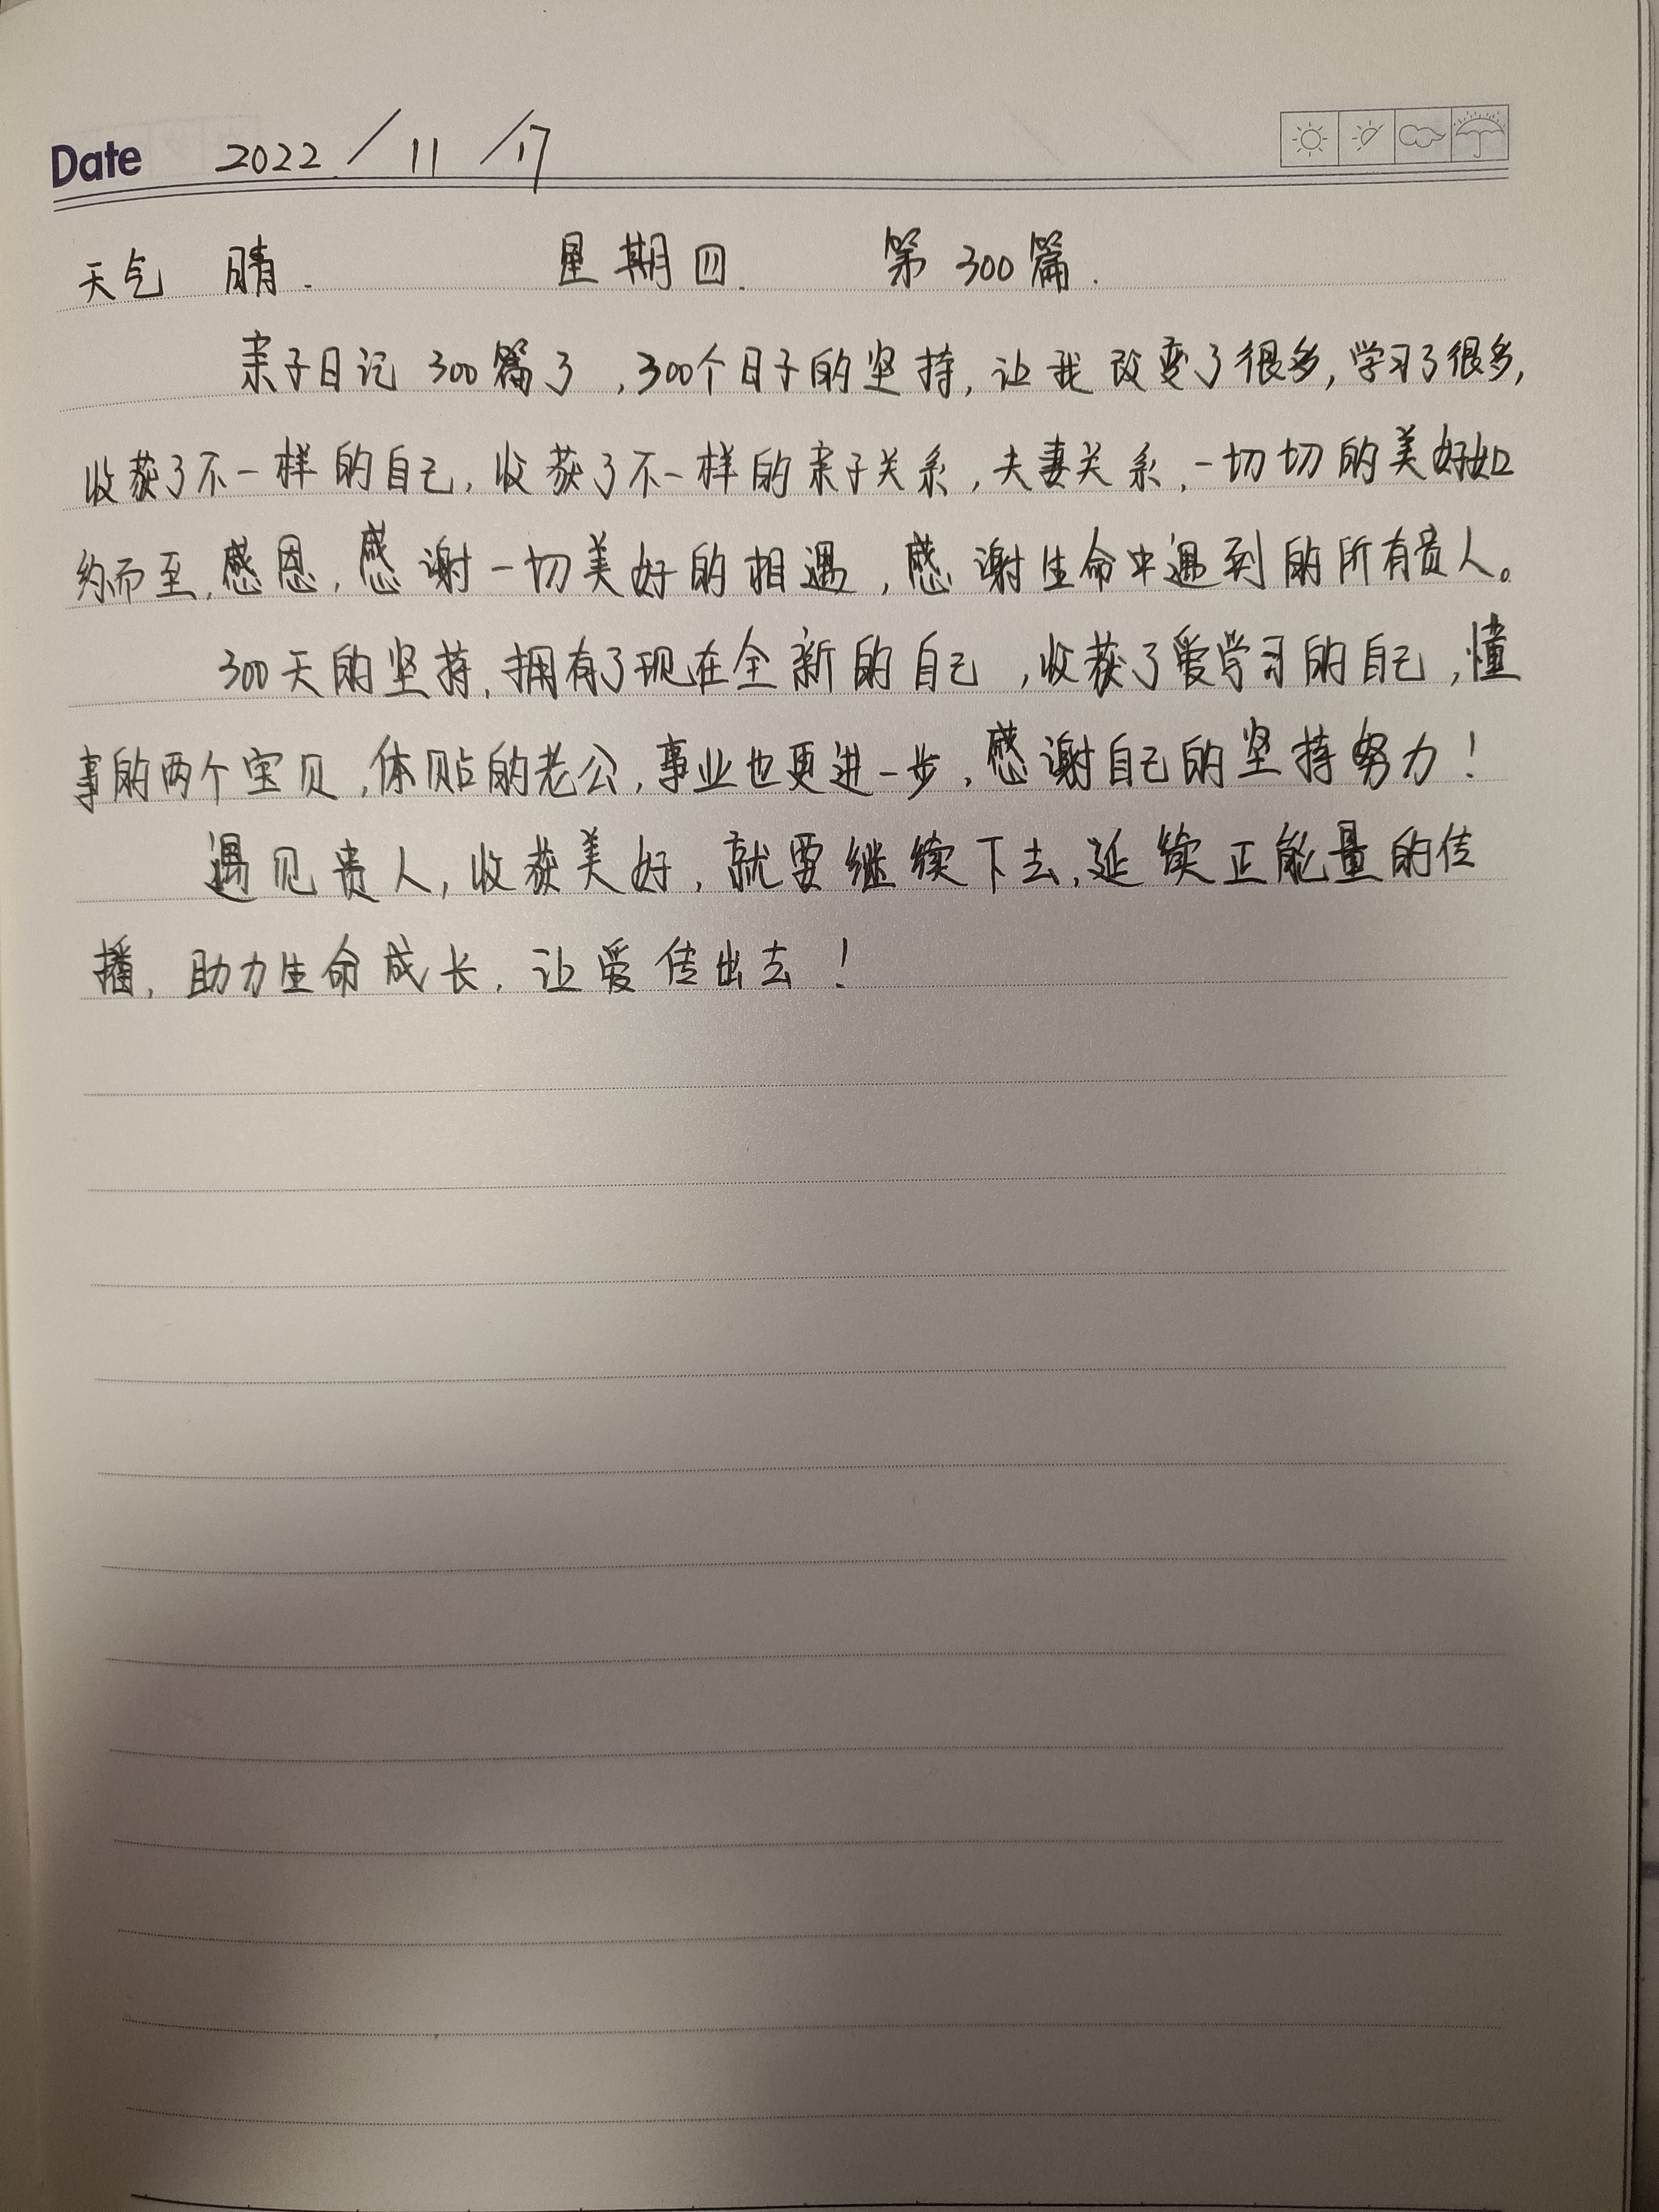 Date 2022 / 11 / 17
天气 晴. 星期四. 第300篇.
亲子日记300篇了,300个日子的坚持,让我改变了很多,学习了很多,
收获了不一样的自己,收获了不一样的亲子关系,夫妻关系,一切切的美好如
约而至,感恩,感谢一切美好的相遇,感谢生命中遇到的所有贵人。
300天的坚持,拥有了现在全新的自己,收获了爱学习的自己,懂
事的两个宝贝,体贴的老公,事业也更进一步,感谢自己的坚持努力!
遇见贵人,收获美好,就要继续下去,延续正能量的传
播,助力生命成长,让爱传出去!